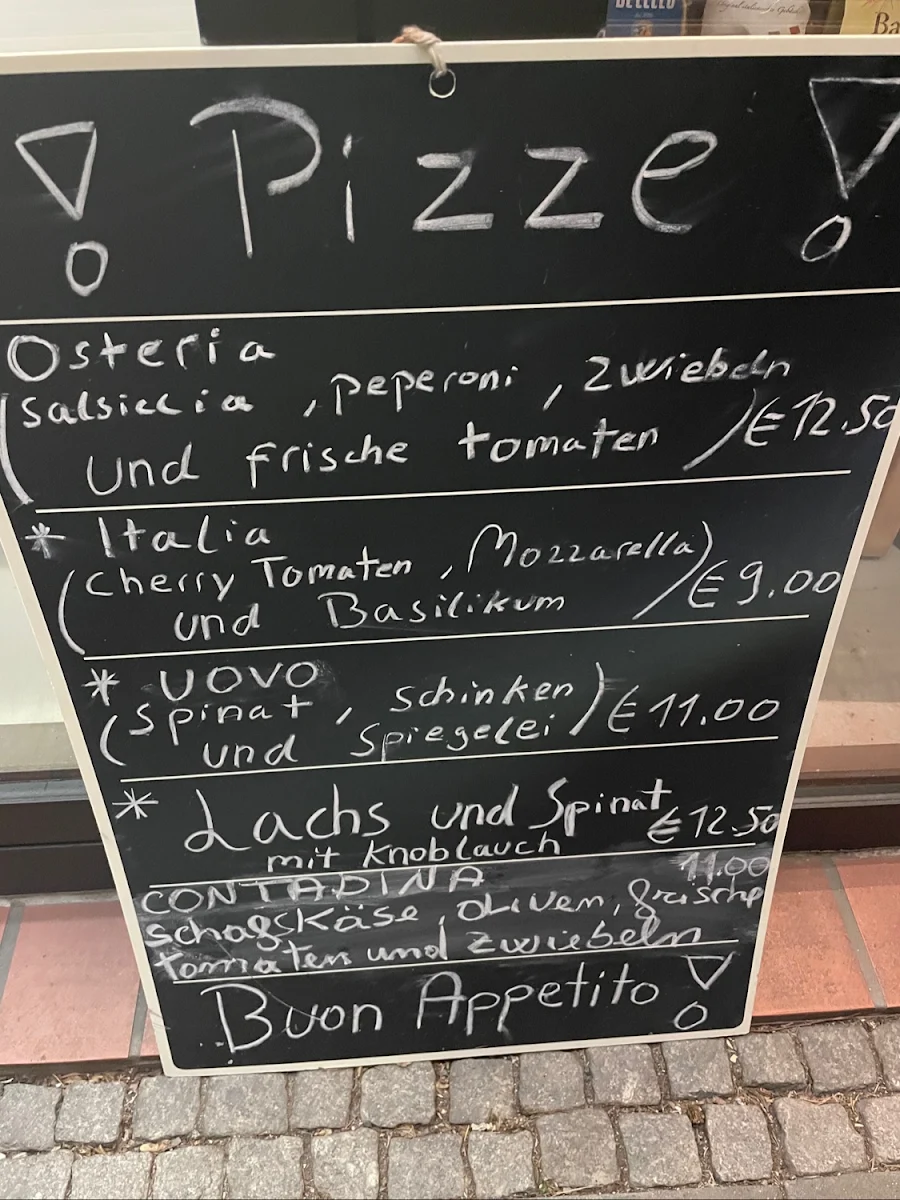 ! Pizze !
Osteria
(Salsiccia, peperoni, Zwiebeln
und frische tomaten) € 12.50
* Italia
(Cherry Tomaten, Mozzarella)
und Basilikum) € 9.00
* UOVO
(Spinat, Schinken)
und Spiegelei) € 11.00
* Lachs und Spinat
mit Knoblauch € 12.50
CONTADINA 11.00
schafskäse, oliven, frische
tomaten und zwiebeln
Buon Appetito !